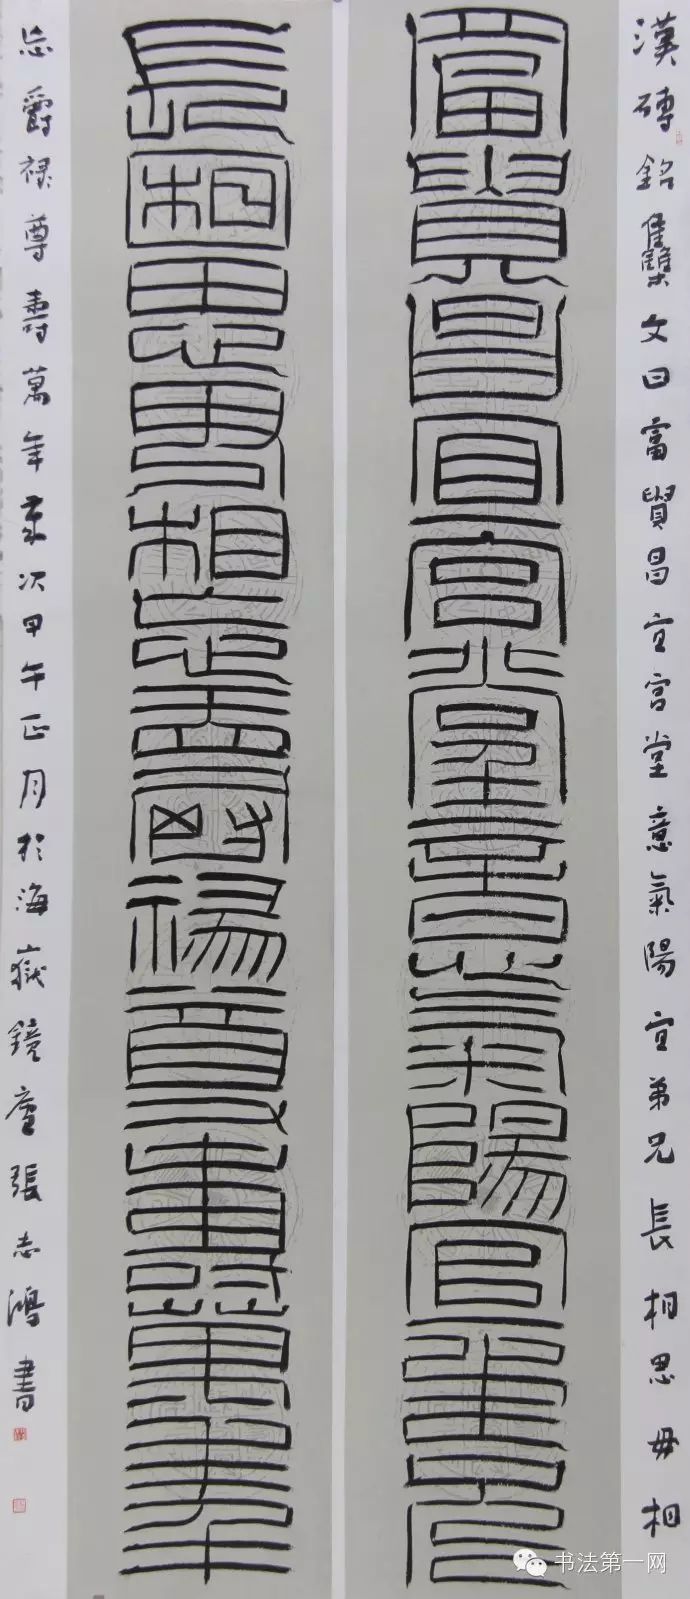 漢磚銘雧文曰富貴昌宜宮堂意氣陽宜弟兄長相思毋相
富貴昌宜宮堂意氣陽宜弟兄
長相思毋相忘爵祿尊壽萬年
忘爵禄尊壽萬年歲次甲午正月於海嶽鏡廬張志鴻書
书法第一网